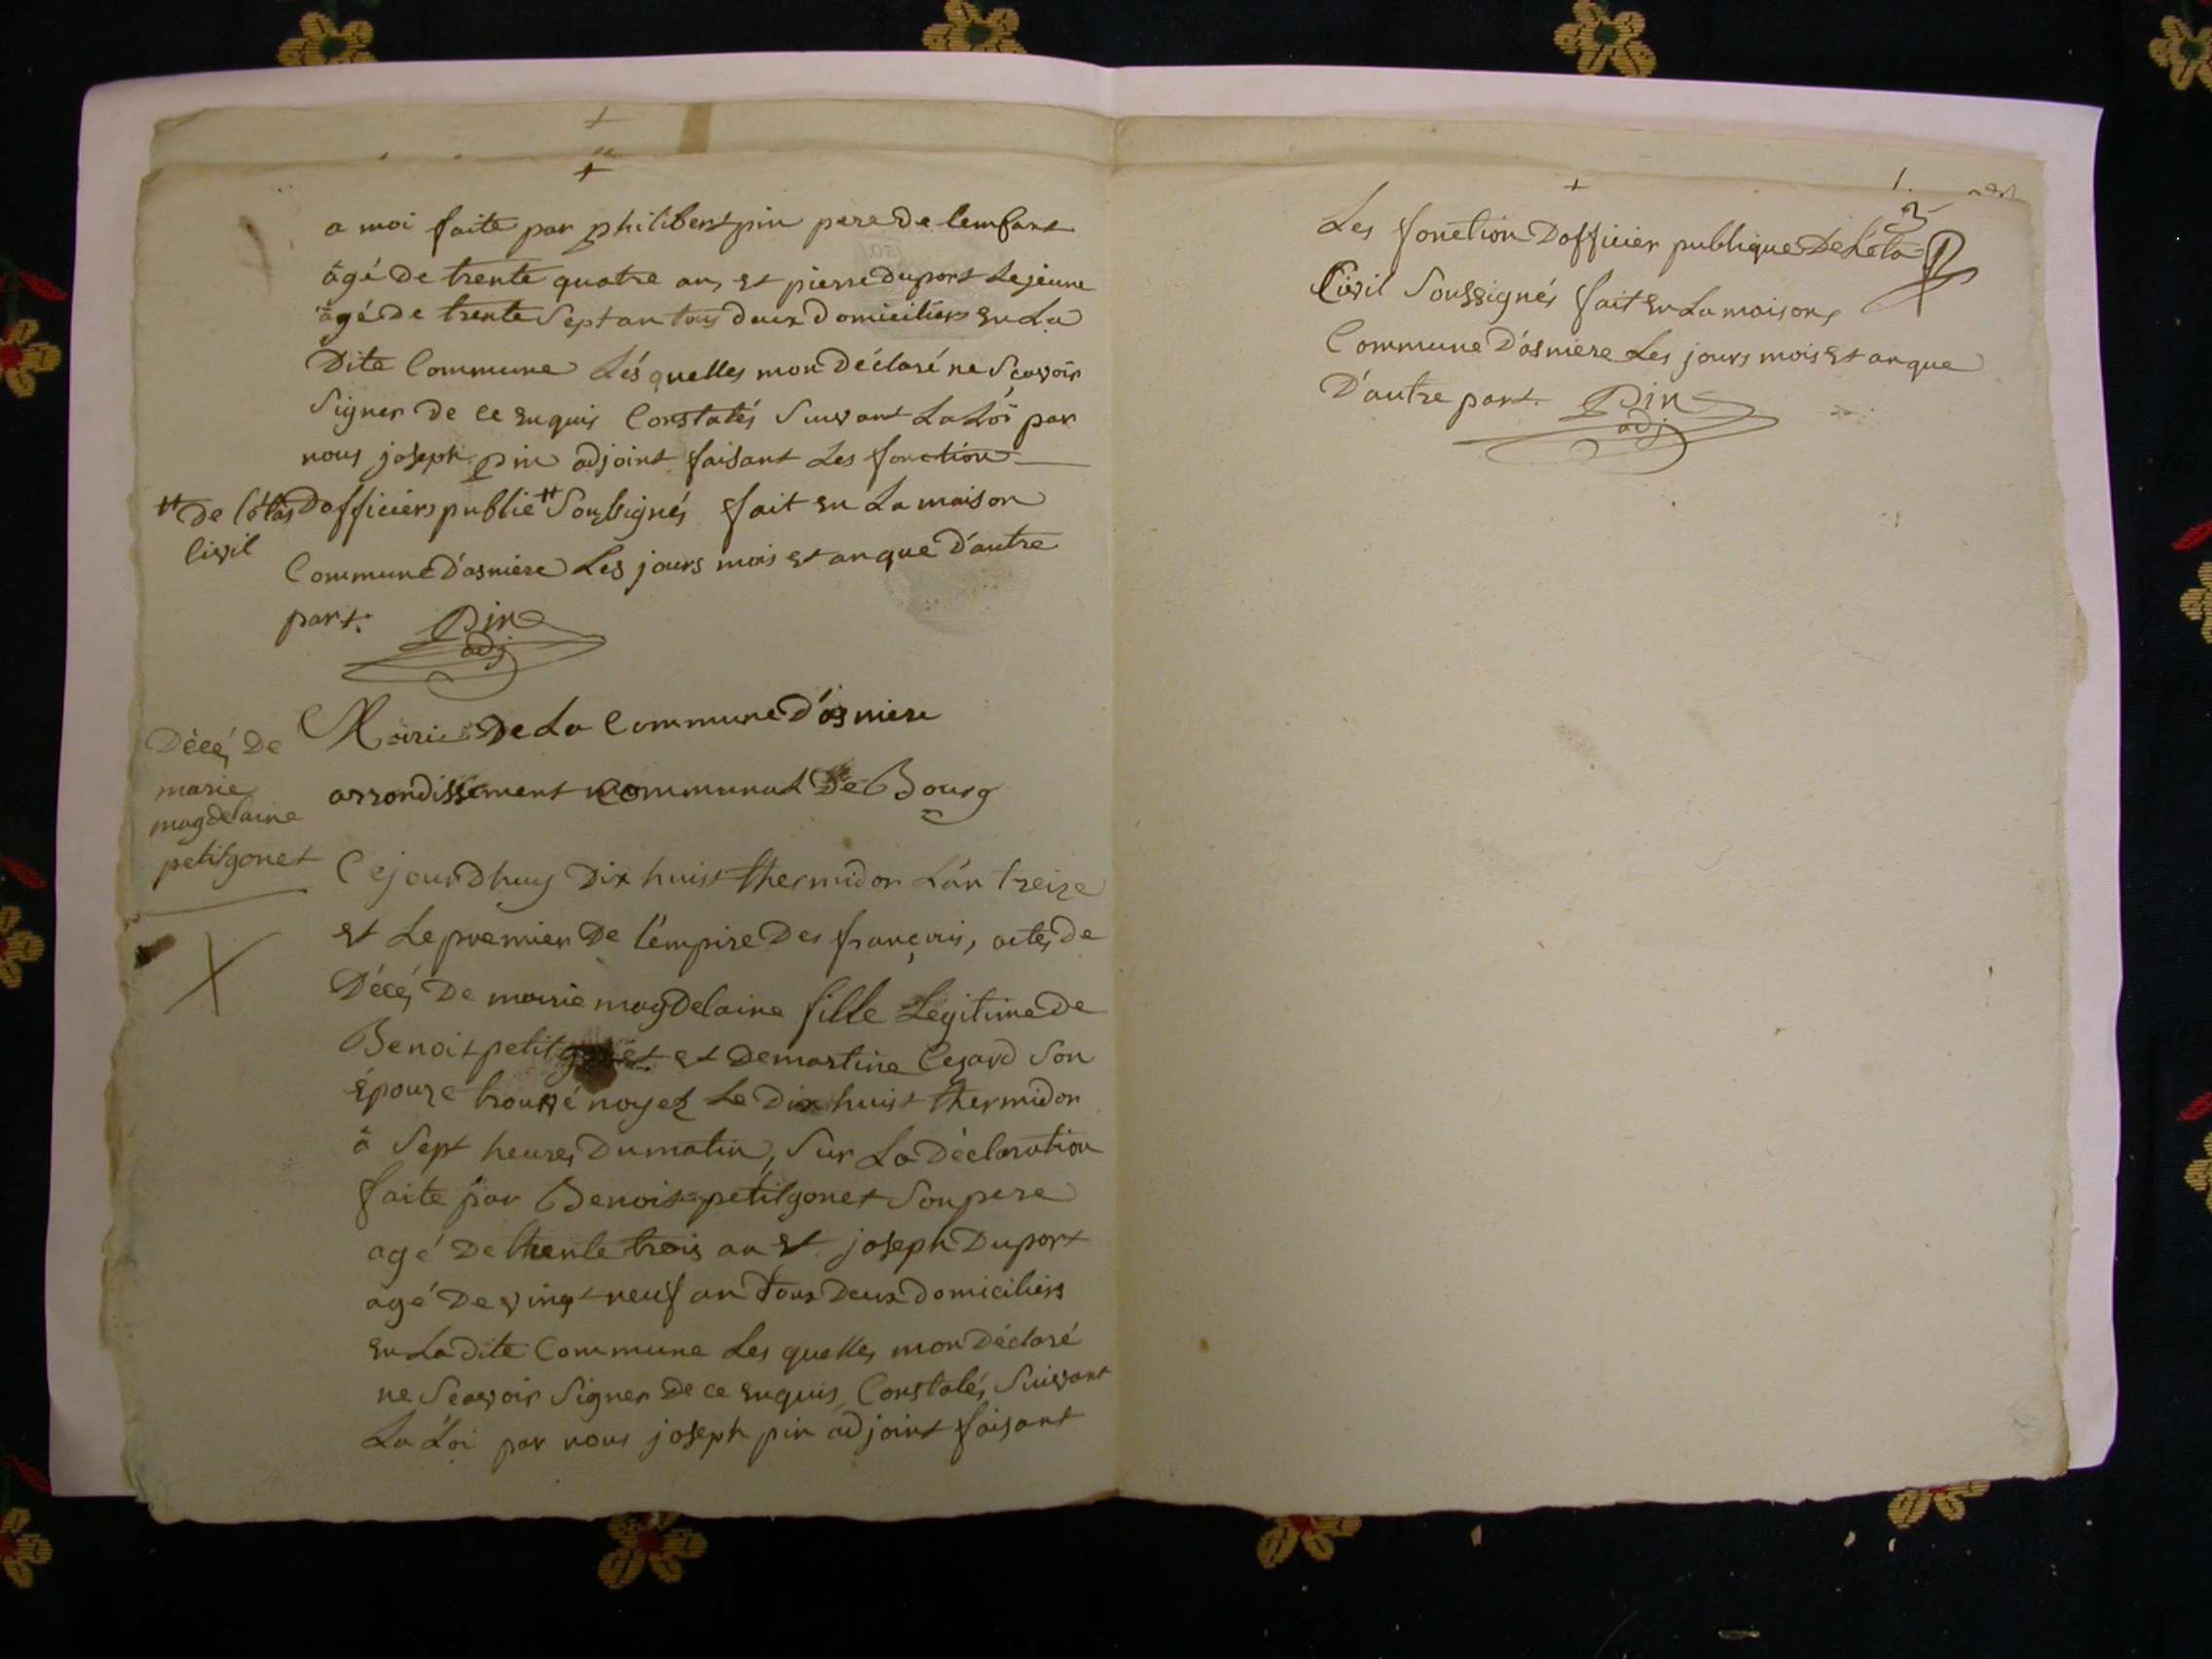 a moi faite par philibert pin pere de lenfant
âgé de trente quatre an, et pierre duport Lejeune
âgé de trente Sept an tous deux domiciliers en La
Dite Commune Lésquelles mon Déclaré ne Sçavoir
Signer de ce enquis Constatés Suivant La Loi par
nous joseph pin adjoint faisant Les fonction
Dofficiers public # Soussignés fait en La maison
# De létas
Civil
Commune D'asniere Les jours mois et an que D'autre
part. Pin
adj
Décé, De
marie
magdelaine
petitgonet
Mairie De La Commune D'asniere
arrondissement communal De Bourg
Cejourdhuy Dix huist thermidor L'an treize
et Le premier De L'émpire Des françois, acte, de
Décé, De marie magdelaine fille Legitime De
Benoit petitgonet et De martine Cezard Son
épouze trouvé noyez Le Dix huist thermidor
à Sept heures Du matin, Sur La Déclaration
faite par Benoit petitgonet Son pere
agé De trente trois an et joseph Duport
agé De vingt neuf an tous Deux Domiciliers
en La dite Commune Les quelles mon Déclaré
ne Scavoir Signer De ce enquis, Constatés, Suivant
La Loi par nous joseph pin adjoint faisant
3
Les fonction Dofficier publique De L'éta
Civil Soussignés fait en La maison
Commune D'asniere Les jours mois et an que
D'autre part. Pin
adj